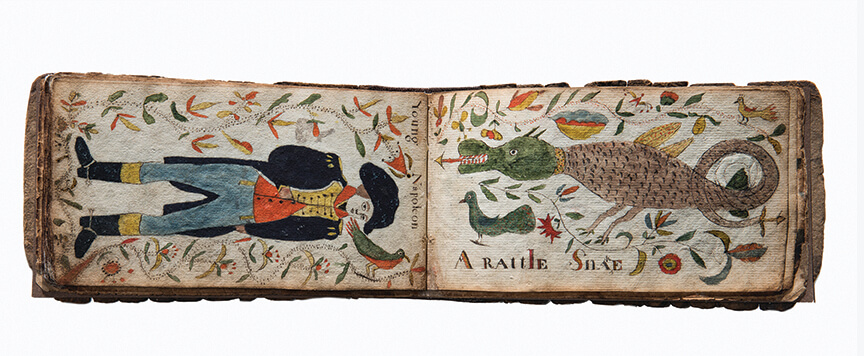 Young Napoleon
A rattle Snke